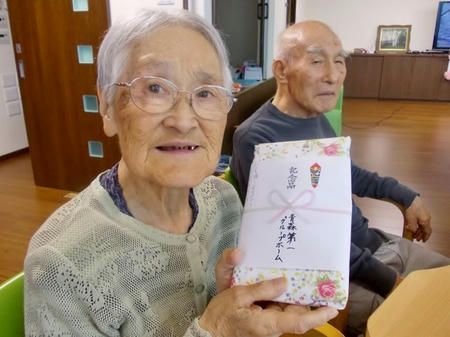 記念品
青森第一
グループホーム